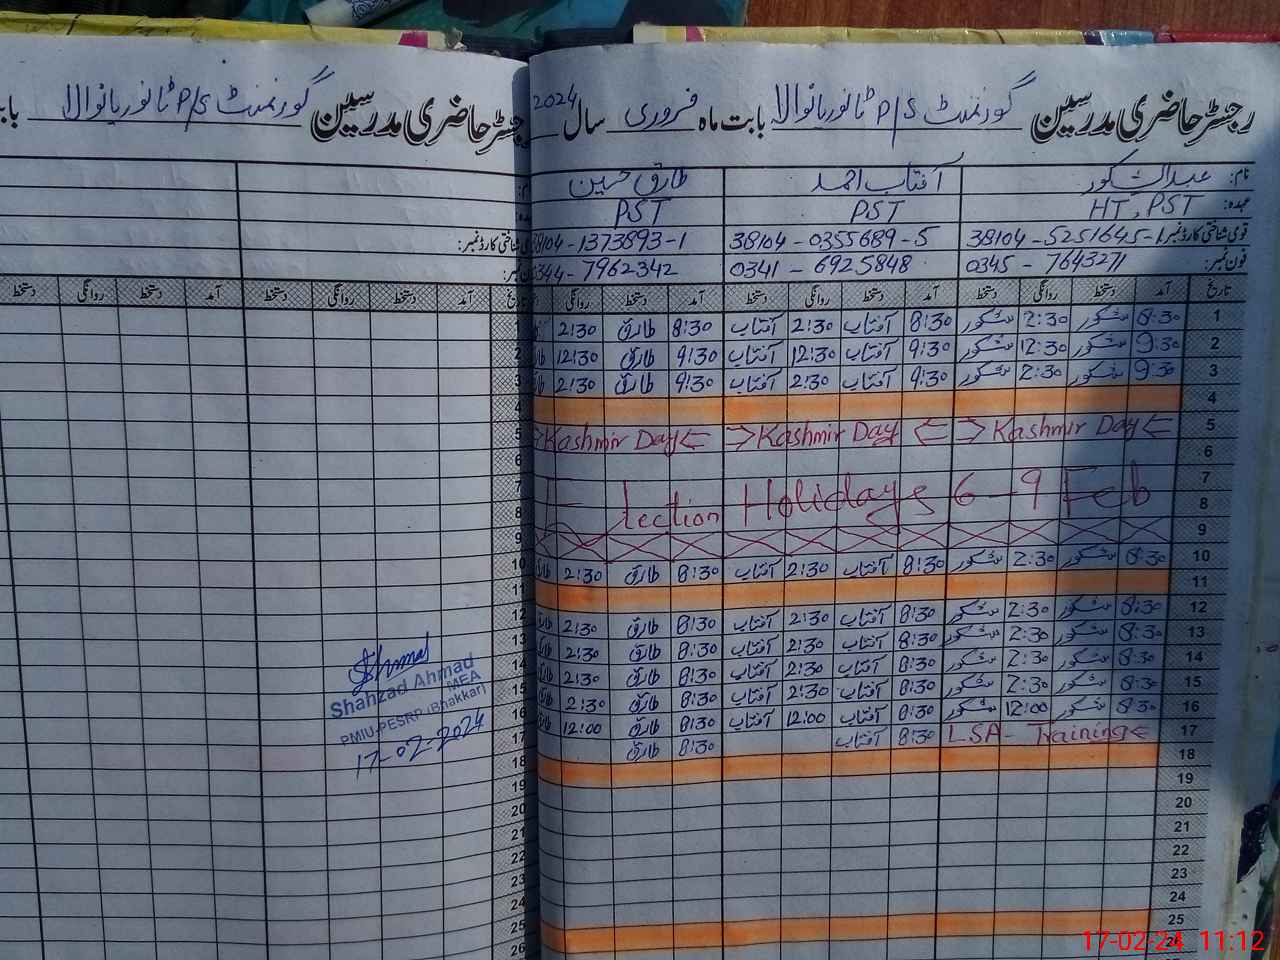 رجسٹر حاضری مدرسین گورنمنٹ P/S ٹانوریانوالا بابت ماہ فروری سال 2024
نام: عبدالشکور آفتاب احمد طارق حسین
عہدہ: HT, PST PST PST
قومی شناختی کارڈ نمبر: 38104-5251645-1 38104-0355689-5 38104-1373893-1
فون نمبر: 0345-7643271 0341-6925848 0344-7962342
تاریخ آمد دستخط روانگی دستخط آمد دستخط روانگی دستخط آمد دستخط روانگی
1 8:30 شکور 2:30 شکور 8:30 آفتاب 2:30 آفتاب 8:30 طارق 2:30
2 9:30 شکور 12:30 شکور 9:30 آفتاب 12:30 آفتاب 9:30 طارق 12:30
3 9:30 شکور 2:30 شکور 9:30 آفتاب 2:30 آفتاب 9:30 طارق 2:30
4
5 Kashmir Day Kashmir Day Kashmir Day
6
7
8 Election Holidays 6-9 Feb
9
10 8:30 شکور 2:30 شکور 8:30 آفتاب 2:30 آفتاب 8:30 طارق 2:30
11
12 8:30 شکور 2:30 شکور 8:30 آفتاب 2:30 آفتاب 8:30 طارق 2:30
13 8:30 شکور 2:30 شکور 8:30 آفتاب 2:30 آفتاب 8:30 طارق 2:30
14 8:30 شکور 2:30 شکور 8:30 آفتاب 2:30 آفتاب 8:30 طارق 2:30
15 8:30 شکور 2:30 شکور 8:30 آفتاب 2:30 آفتاب 8:30 طارق 2:30
16 8:30 شکور 12:00 شکور 8:30 آفتاب 12:00 آفتاب 8:30 طارق 12:00
17 LSA-Training 8:30 آفتاب 8:30 طارق
18
19
20
21
22
23
24
25
رجسٹر حاضری مدرسین گورنمنٹ P/S ٹانوریانوالا بابت
قومی شناختی کارڈ نمبر:
فون نمبر:
تاریخ آمد دستخط روانگی دستخط آمد دستخط روانگی دستخط
1
2
3
4
5
6
7
8
9
10
11
12
13
14
15
16
17
18
19
20
21
22
23
24
25
26
Shahzad Ahmad
MEA
PMIU-PESRP (Bhakkar)
17-02-2024
17-02-24 11:12